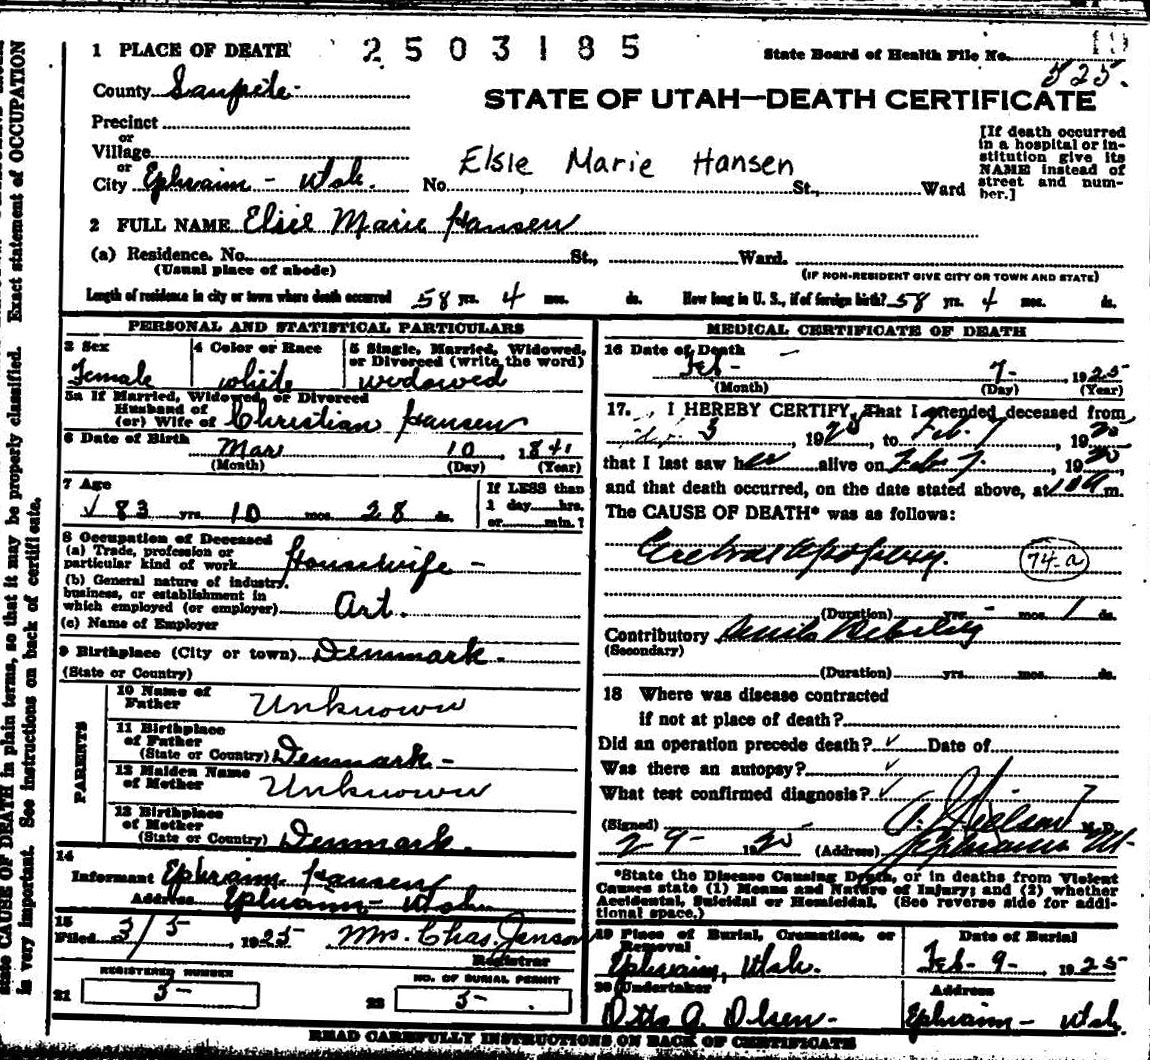 1 PLACE OF DEATH 2503185 State Board of Health File No. 19
525.
County Sanpete
STATE OF UTAH—DEATH CERTIFICATE
Precinct
or
Village
or
City Ephraim - Utah. No. Elsie Marie Hansen St., Ward
[If death occurred
in a hospital or in-
stitution give its
NAME instead of
street and num-
ber.]
2 FULL NAME Elsie Marie Hansen
(a) Residence. No. St., Ward.
(Usual place of abode) (IF NON-RESIDENT GIVE CITY OR TOWN AND STATE)
Length of residence in city or town where death occurred 58 yrs. 4 mos. ds. How long in U. S., if of foreign birth? 58 yrs. 4 mos. ds.
PERSONAL AND STATISTICAL PARTICULARS
3 Sex 4 Color or Race 5 Single, Married, Widowed,
or Divorced (write the word)
Female white widowed
5a If Married, Widowed, or Divorced
Husband of
(or) Wife of Christian Hansen
6 Date of Birth
Mar 10, 1841
(Month) (Day) (Year)
7 Age If LESS than
1 day hrs.
or min.?
83 yrs. 10 mos. 28 ds.
8 Occupation of Deceased
(a) Trade, profession or
particular kind of work Housewife -
(b) General nature of industry,
business, or establishment in
which employed (or employer) Art.
(c) Name of Employer
9 Birthplace (City or town) Denmark -
(State or Country)
PARENTS
10 Name of
Father Unknown
11 Birthplace
of Father
(State or Country) Denmark -
12 Maiden Name
of Mother Unknown
13 Birthplace
of Mother
(State or Country) Denmark.
14
Informant Ephraim Hansen
Address Ephraim - Utah
15
Filed 3/5, 1925 Mrs. Chas. Jenson
Registrar
REGISTERED NUMBER NO. OF BURIAL PERMIT
21 5- 22 5-
MEDICAL CERTIFICATE OF DEATH
16 Date of Death
Feb - 7-, 1925
(Month) (Day) (Year)
17. I HEREBY CERTIFY, That I attended deceased from
3, 1925, to Feb. 7, 1925
that I last saw her alive on Feb 7, 1925,
and that death occurred, on the date stated above, at m.
The CAUSE OF DEATH* was as follows:
74-a
(Duration) yrs. - mos. 1 ds.
Contributory Senile Debility
(Secondary)
(Duration) yrs. mos. ds.
18 Where was disease contracted
if not at place of death?
Did an operation precede death? Date of
Was there an autopsy?
What test confirmed diagnosis?
(Signed) M. D.
2-9-1925 (Address) Ephraim Ut-
*State the Disease Causing Death, or in deaths from Violent
Causes state (1) Means and Nature of Injury; and (2) whether
Accidental, Suicidal or Homicidal. (See reverse side for addi-
tional space.)
19 Place of Burial, Cremation, or
Removal
Date of Burial
Ephraim, Utah. Feb-9-, 1925
20 Undertaker Address
Otto A. Olsen - Ephraim - Utah.
READ CAREFULLY INSTRUCTIONS ON BACK OF CERTIFICATE
state CAUSE OF DEATH in plain terms, so that it may be properly classified. Exact statement of OCCUPATION
is very important. See instructions on back of certificate.